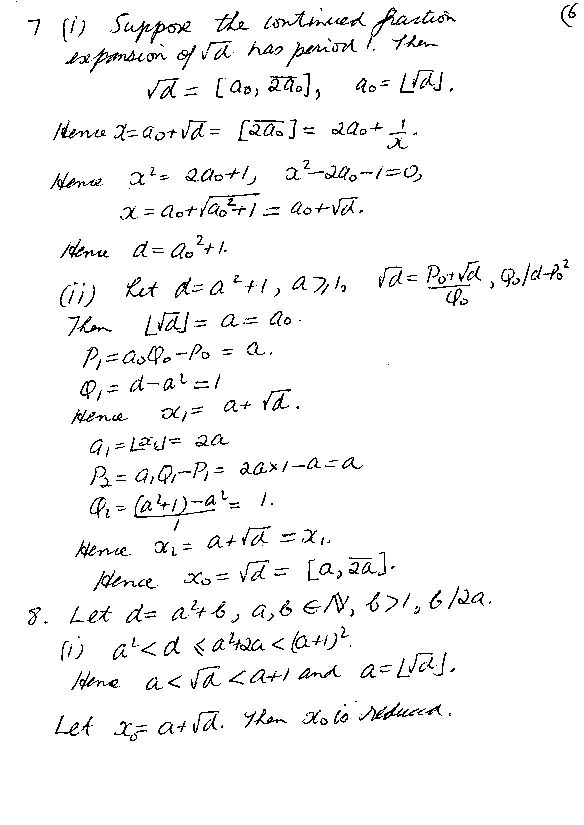 (6
7 (i) Suppose the continued fraction
expansion of √d has period 1. Then
√d = [a₀, \overline{2a₀}], a₀ = ⌊√d⌋.
Hence x = a₀+√d = [\overline{2a₀}] = 2a₀ + 1/x.
Hence x² = 2a₀+1, x²−2a₀−1=0,
x = a₀+√(a₀²+1) = a₀+√d.
Hence d = a₀²+1.
(ii) Let d = a²+1, a⩾1, √d = (P₀+√d)/Q₀, Q₀/d−P₀²
Then ⌊√d⌋ = a = a₀.
P₁ = a₀Q₀−P₀ = a.
Q₁ = d−a² = 1
Hence x₁ = a+√d.
a₁ = ⌊x₁⌋ = 2a
P₂ = a₁Q₁−P₁ = 2a×1−a = a
Q₂ = ((a²+1)−a²)/1 = 1.
Hence x₂ = a+√d = x₁.
Hence x₀ = √d = [a, \overline{2a}].
8. Let d = a²+b, a,b ∈ N, b>1, b/2a.
(i) a² < d ⩽ a²+2a < (a+1)².
Hence a < √d < a+1 and a = ⌊√d⌋.
Let x₀ = a+√d. Then x₀ is reduced.